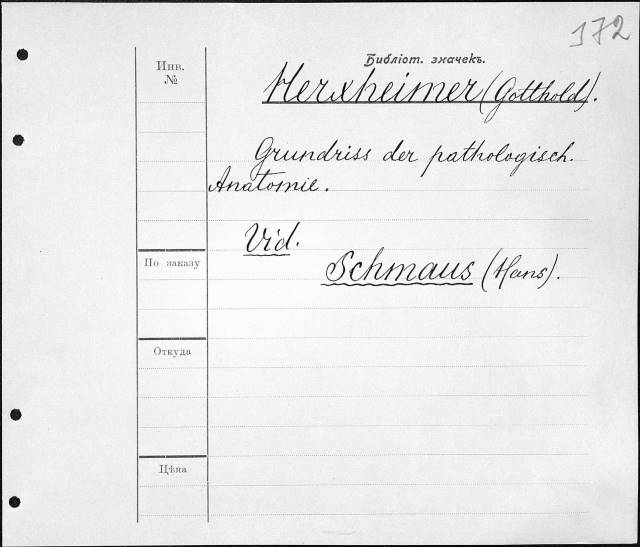 172
Библіот. значекъ.
Инв.
№
Herxheimer (Gotthold).
Grundriss der pathologisch.
Anatomie.
Vid.
Schmaus (Hans).
По заказу
Откуда
Цѣна